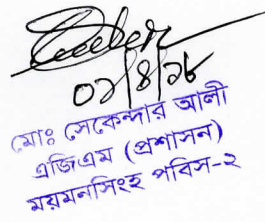 ০১/৪/১৮
মোঃ সেকেন্দার আলী
এজিএম (প্রশাসন)
ময়মনসিংহ পবিস-২